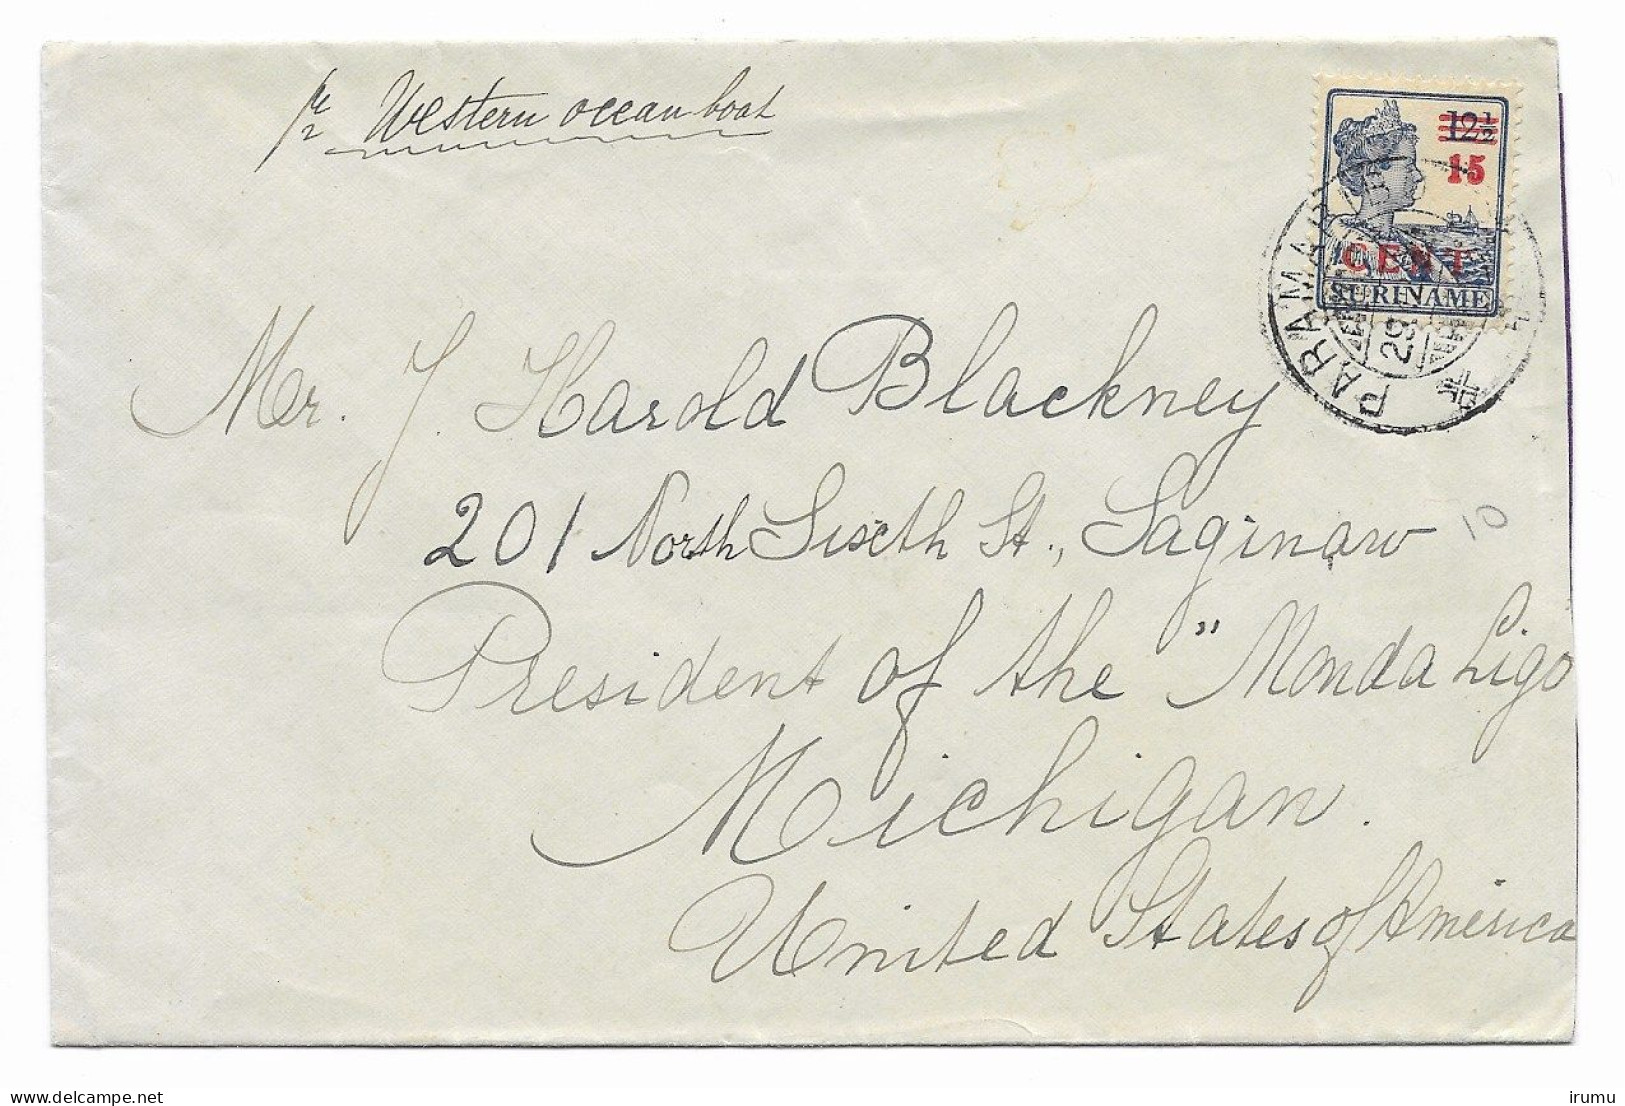 pr Western ocean boat
12½
15
CENT
SURINAME
PARAMARIBO
29
Mr. J. Harold Blackney
201 North Sixth St., Saginaw
10
President of the "Monda Ligo
Michigan.
United States of America
© delcampe.net
irumu